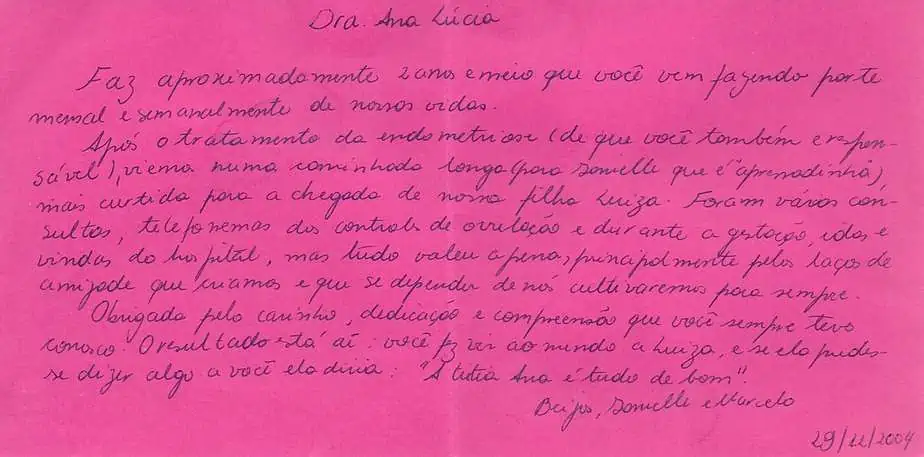 Dra. Ana Lúcia
Faz aproximadamente 2 anos e meio que você vem fazendo parte
mensal e semanalmente de nossas vidas.
Após o tratamento da endometriose (de que você também e respon-
sável), viemos numa caminhada longa (para Danielle que é "apressadinha")
mais curtida para a chegada de nossa filha Luiza. Foram várias con-
sultas, telefonemas dos controles de ovulação e durante a gestação, idas e
vindas do hospital, mas tudo valeu a pena, principalmente pelos laços de
amizade que criamos e que se depender de nós cultivaremos para sempre.
Obrigada pelo carinho, dedicação e compreensão que você sempre teve
conosco. O resultado está aí: você fez vir ao mundo a Luiza, e se ela pudes-
se dizer algo a você ela diria: "A titia Ana é tudo de bom".
Beijos, Danielle e Marcelo
29/12/2004